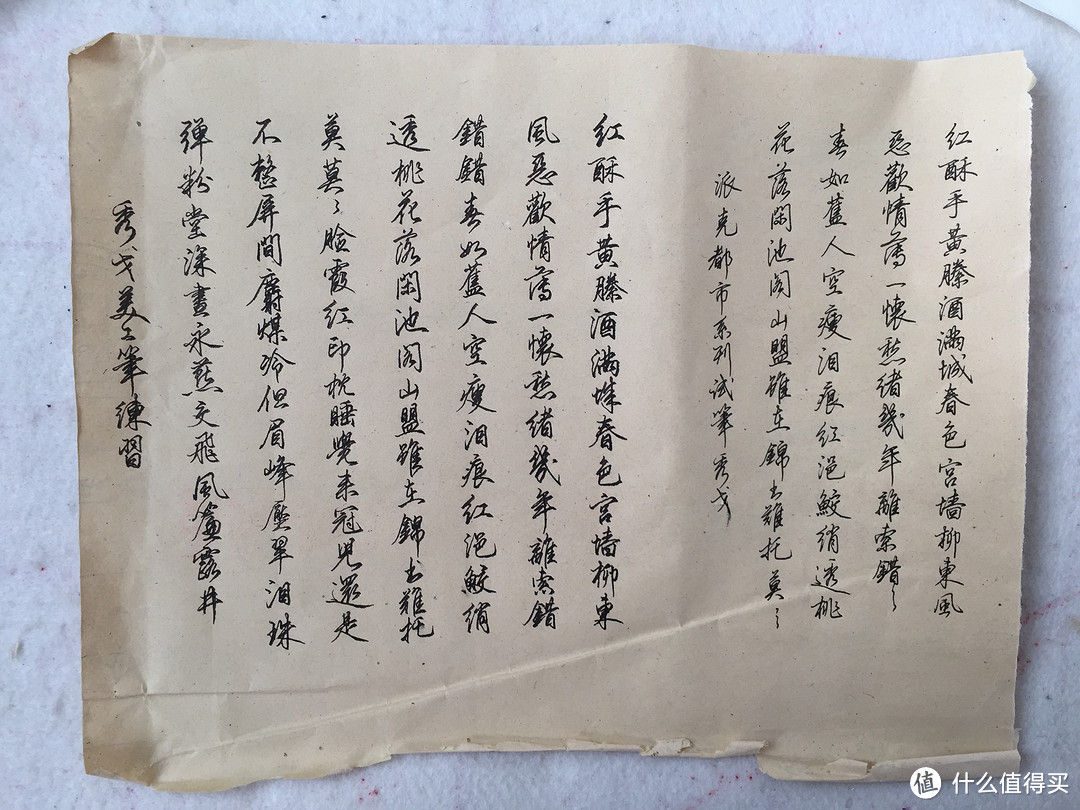 红酥手黄縢酒满城春色宫墙柳東風
惡歡情薄一懷愁绪幾年離索錯〻
春如舊人空瘦泪痕红浥鮫绡透桃
花落閑池阁山盟雖在錦书難托莫〻
派克都市系列试筆秀戈
红酥手黄縢酒满城春色宫墙柳東
風惡歡情薄一懷愁绪幾年離索錯
錯錯春如舊人空瘦泪痕红浥鮫绡
透桃花落閑池阁山盟雖在錦书難托
莫莫〻臉霞红印枕睡覺来冠兒還是
不整屏間麝煤冷但眉峰壓翠泪珠
弹粉堂深晝永燕交飛風簾露井
秀戈美工筆練習
值 什么值得买